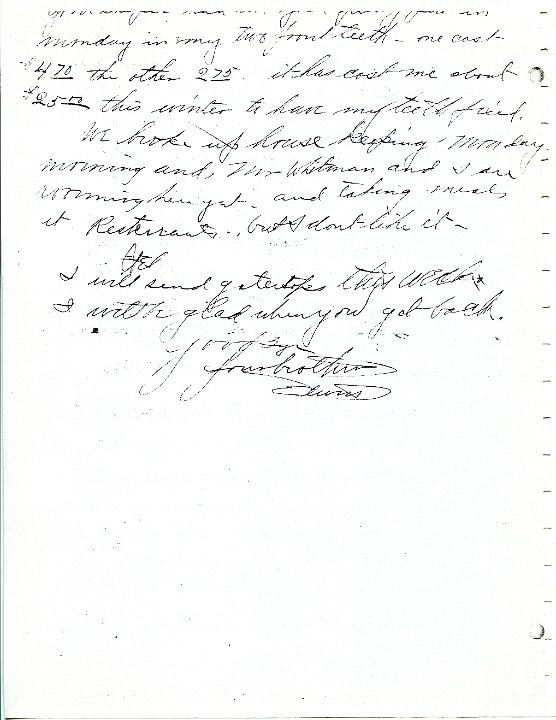 monday in my two front teeth - one cost
$4 70 the other 2 75. it has cost me about
$25.00 this winter to have my teeth fixed.
We broke up house keeping monday
morning and, Mr Whitman and I are
rooming here yet - and taking meals
at Resterrants., but I dont like it -
I will send this week
I will be glad when you get back.
good by
your brother
Lewis